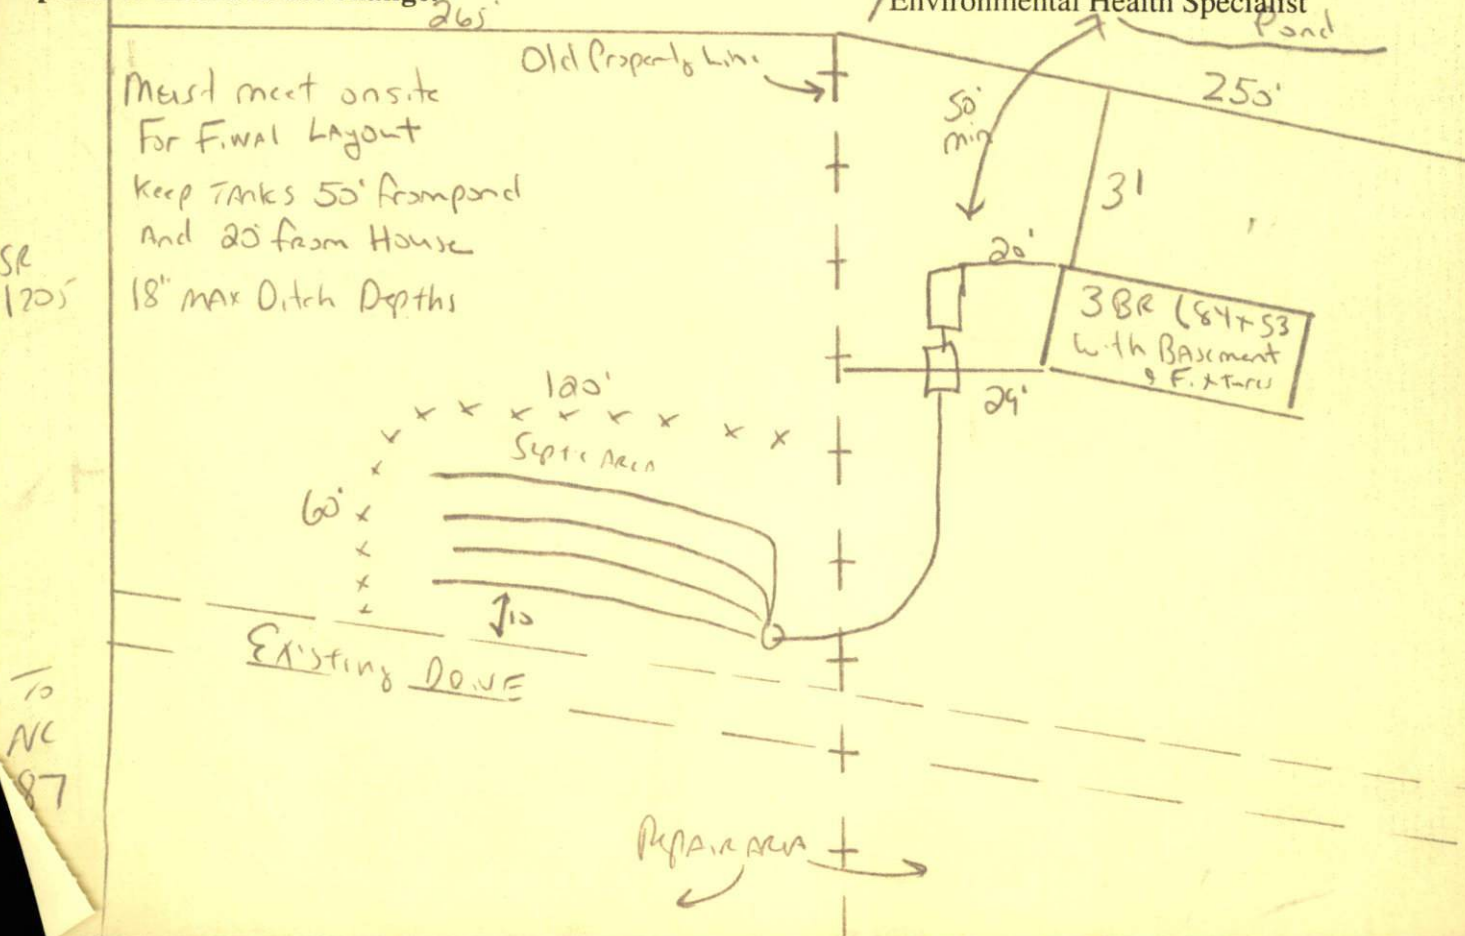 Environmental Health Specialist
265'
Pond
Old Property Line
250'
Must meet onsite
For Final Layout
Keep Tanks 50' from pond
And 20' from House
18" max Ditch Depths
50'
min
31
SR
1205
20'
3 BR (84x53
with Basement
& Fixtures
29'
120'
Septic Area
60'
10
Existing Drive
To
NC
87
Repair Area